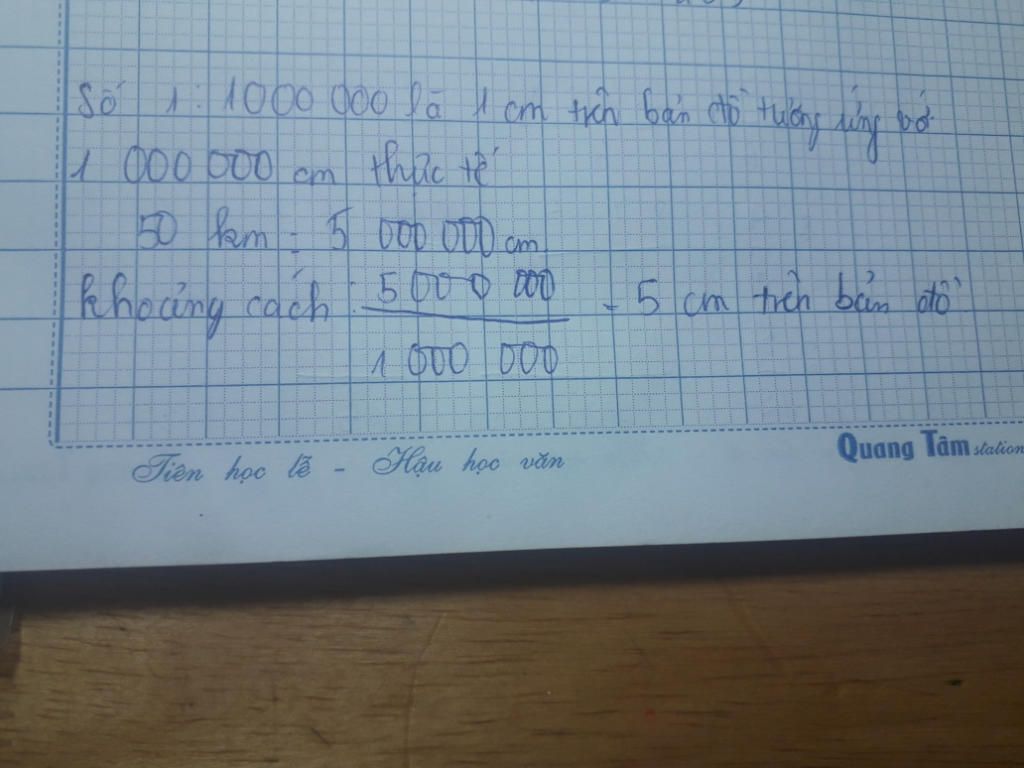 Số 1: 1000 000 là 1 cm trên bản đồ tương ứng với
1 000 000 cm thức tế
50 km = 5 000 000 cm
khoảng cách: 5 000 000 / 1 000 000 = 5 cm trên bản đồ
Tiên học lễ - Hậu học văn
Quang Tâm station